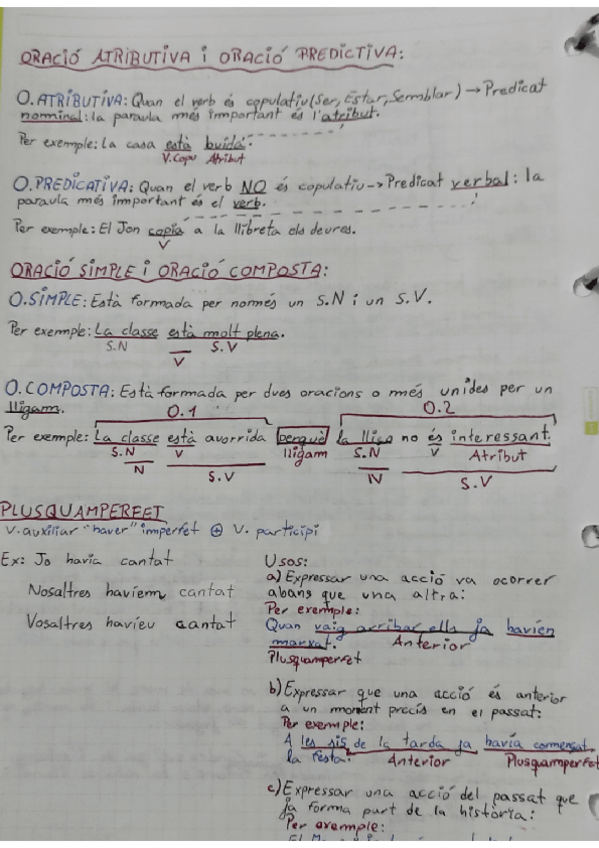 ORACIÓ ATRIBUTIVA i ORACIÓ PREDICTIVA:
O. ATRIBUTIVA: Quan el verb és copulatiu (Ser, Estar, Semblar) → Predicat
nominal: la paraula més important és l'atribut.
Per exemple: La casa està buida.
V. Copu Atribut
O. PREDICATIVA: Quan el verb NO és copulatiu → Predicat verbal: la
paraula més important és el verb.
Per exemple: El Jon copia a la llibreta els deures.
V
ORACIÓ SIMPLE i ORACIÓ COMPOSTA:
O. SIMPLE: Està formada per només un S.N i un S.V.
Per exemple: La classe està molt plena.
S.N S.V
V
O. COMPOSTA: Està formada per dues oracions o més unides per un
lligam.
O.1 O.2
Per exemple: La classe està avorrida perquè la lliço no és interessant.
S.N V lligam S.N V Atribut
N S.V N S.V
PLUSQUAMPERFET
V. auxiliar "haver" imperfet + V. participi
Ex: Jo havia cantat
Nosaltres havíem cantat
Vosaltres havíeu cantat
Usos:
a) Expressar una acció va ocorrer
abans que una altra:
Per exemple:
Quan vaig arribar ells ja havien
marxat. Anterior
Plusquamperfet
b) Expressar que una acció és anterior
a un moment precís en el passat:
Per exemple:
A les sis de la tarda ja havia començat
la festa. Anterior Plusquamperfet
c) Expressar una acció del passat que
ja forma part de la història:
Per exemple:
El